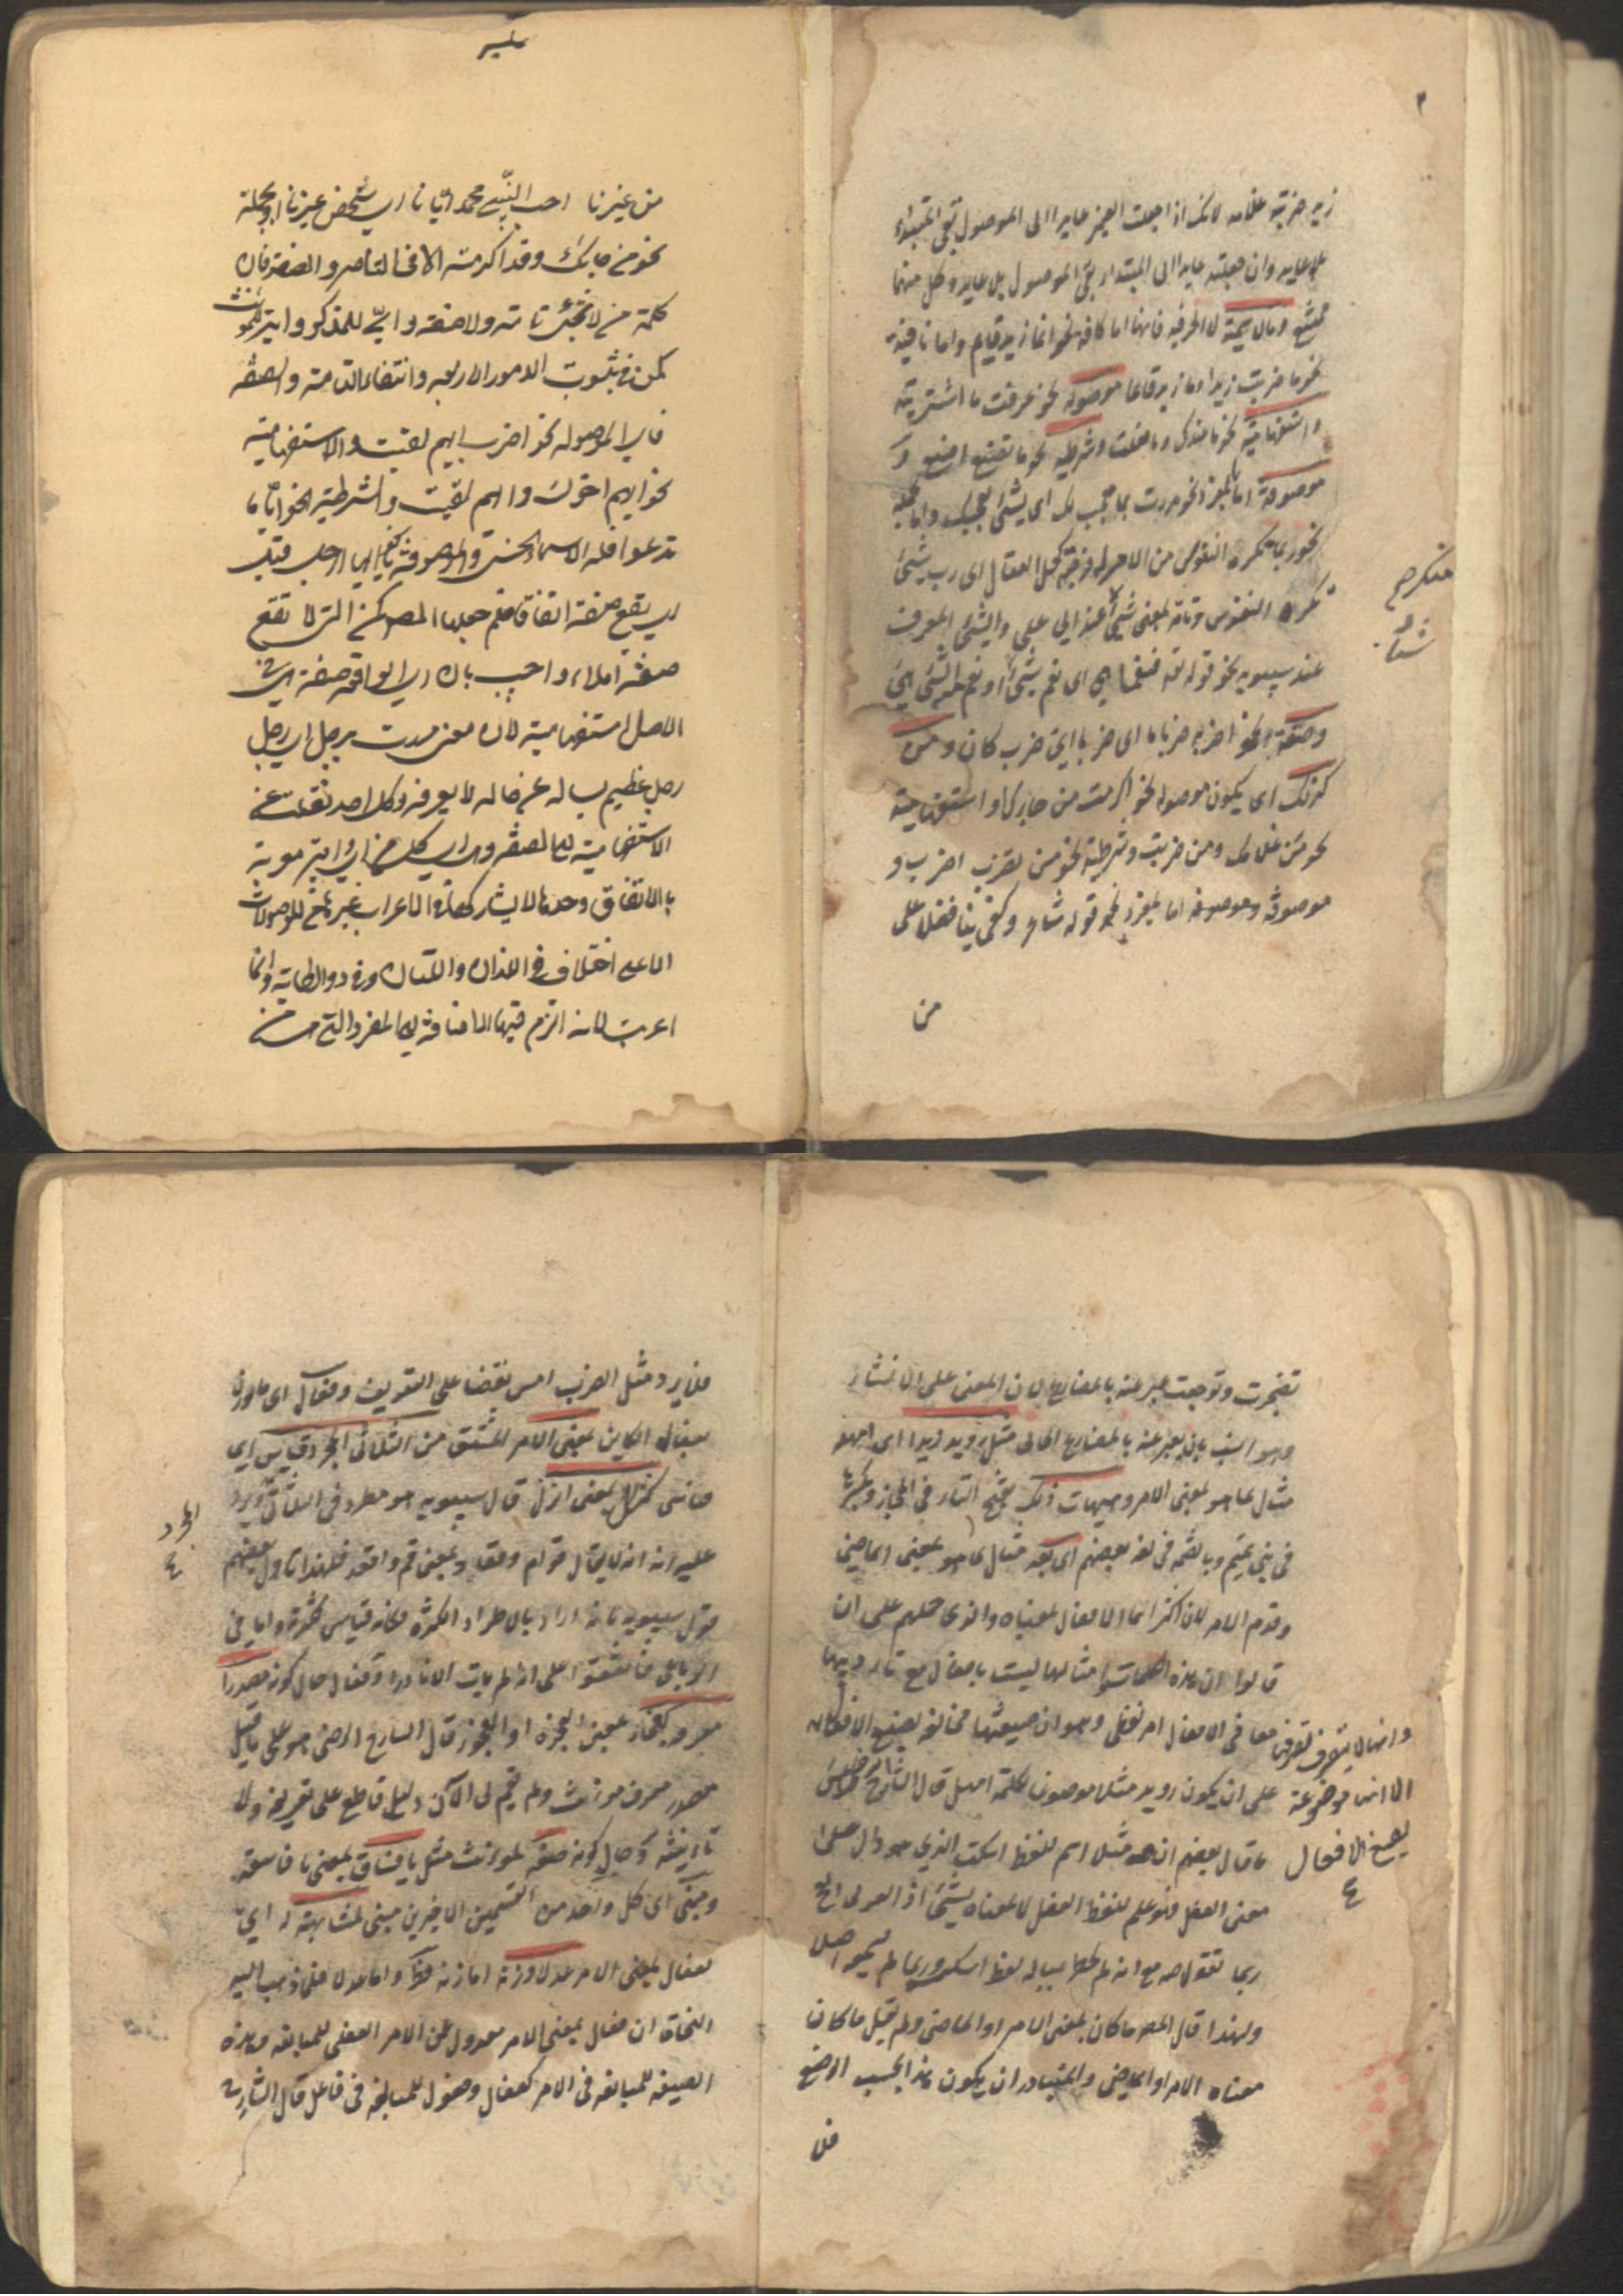 ٣
زيد ضربته غلامه لانك اذا جعلت الضمير عايدا الى الموصول بقى المبتداء
بلا عايد وان جعلته عايدا الى المبتداء بقى الموصول بلا عايد وكل منهما
ممتنع وما الاسمية لا الحرفية فانها اما كافة نحو انما زيد قايم واما نافية
نحو ما ضربت زيدا وما زيد قائما موصولة نحو عرفت ما اشتريته
واستفهامية نحو ما عندك وما فعلت وشرطية نحو ما تصنع اصنع و
موصوفة اما بمفرد نحو مررت بما معجب لك اى بشئ يعجبك واما بجملة
نحو ربما تكره النفوس من الامر له فرجة كحل العقال اى رب شئ
تكره النفوس وتامة بمعنى شئ عند ابي على والشئ المعرف
عند سيبويه نحو قوله تع فنعما هي اى نعم شيئا او نعم الشئ هي
وصفة نحو اضربه ضربا ما اى ضربا اى ضرب كان ومن
كذلك اى يكون موصولة نحو اكرمت من جاءك او استفهامية
نحو من غلامك ومن ضربت وشرطية نحو من تضرب اضرب و
موصوفة وموصوفة اما بمفرد نحو قوله شعر وكفى بنا فضلا على
من
من غيرنا حب النبي محمد ايانا اى شخص غيرنا او بجملة
نحو من جاءك وقد اكرمته الا فى التامة والصفة فان
كلمة من لا تجئ تامة ولا صفة واى للمذكر واية للمؤنث
كمن فى ثبوت الامور الاربعه وانتفاء التامة والصفه
فاى الموصوله نحو اضرب ايهم لقيت والاستفهامية
نحو ايهم اخوك وايهم لقيت والشرطية نحو ايا ما
تدعوا فله الاسماء الحسنى والموصوفة نحو يا ايها الرجل قيل
اى يقع صفة اتفاقا فلم جعلها المص كمن التى لا تقع
صفة اصلا واجيب بان اى الواقعة صفة هى فى
الاصل استفهامية لان معنى مررت برجل اى رجل
رجل عظيم يسال عن حاله لا يعرفه كل احد نقلت عن
الاستفهامية الى الصفة وهى اى كل من اى واية معربة
بالاتفاق وحدها لا يشاركها فى الاعراب غيرها من الموصولات
الا على اختلاف فى اللذان واللتان وفى ذو الطائية وانما
اعربت لانه التزم فيها الاضافة الى المفرد التى هى من
تضجرت وتوجعت عبر عنه بالمضارع لان المعنى على الانشاء
وهو انسب بان يعبر عنه بالمضارع الحالى مثل رويد زيدا اى امهله
مثال لما هو بمعنى الامر وهيهات ذلك بفتح التاء فى الحجاز وبكسرها
فى بنى تميم وبالضم فى لغة بعضهم اى بعد مثال لما هو بمعنى الماضى
وقدم الامر لان اكثر اسماء الافعال بمعناه والذى حملهم على ان
قالوا ان هذه الكلمات وامثالها ليست بافعال مع تاديتها
معانى الافعال امر لفظى وهو ان صيغتها مخالفة لصيغ الافعال
وانها لا تتصرف تصرفها
على ان يكون رويد مثلا موضوعا لكلمة امهل قال الشارح الرضى وليس
ما قال بعضهم ان صه مثلا اسم للفظ اسكت الذي هو دال على
معنى الفعل فهو علم للفظ الفعل لا لمعناه بشئ اذ العربى القح
ربما تقول صه مع انه لم يخطر بباله لفظ اسكت وربما لم يسمعه اصلا
ولهذا قال المص ما كان بمعنى الامر او الماضى ولم يقل ما كان
معناه الامر او الماضى والمتبادر ان يكون هذا بحسب الوضع
فلا
الا انها موضوعة
لصيغ الافعال
فلا يرد مثل الضرب امس نقضا على التعريف وفعال اى ما وزن
بفعال الكاين بمعنى الامر المشتق من الثلاثى المجرد قياس اى
قياسى كنزال بمعنى انزل قال سيبويه هو مطرد فى الثلاثى ويرد
عليه انه لا يقال قوام وقعاد بمعنى قم واقعد فلهذا تاول بعضهم
قول سيبويه بانه اراد بالاطراد الكثرة فكانه قياس لكثرته واما فى
الرباعى فاتفقوا على انه لم يات الا نادرا وفعال حال كونه مصدرا
معرفة كفجار بمعنى الفجرة او الفجور قال الشارح الرضى هو على ما قيل
مصدر معرف مونث ولم يقم لى الآن دليل قاطع على تعريفه ولا
تانيثه وحال كونه صفة لمونث مثل يا فساق بمعنى يا فاسقة
ومبنى اى كل واحد من القسمين الاخيرين مبنى لمشابهته له اى
لفعال بمعنى الامر عدلا وزنة اما زنة فظ واما عدلا فلما ذهب اليه
النحاة ان فعال بمعنى الامر معدول عن الامر الفعلى للمبالغة وهذه
الصيغة للمبالغة فى الامر كفعال وفعول للمبالغة فى فاعل قال الشارح
المجرد